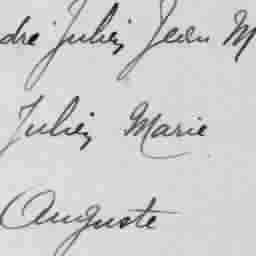 dré Julien Jean M
Julien Marie
Auguste